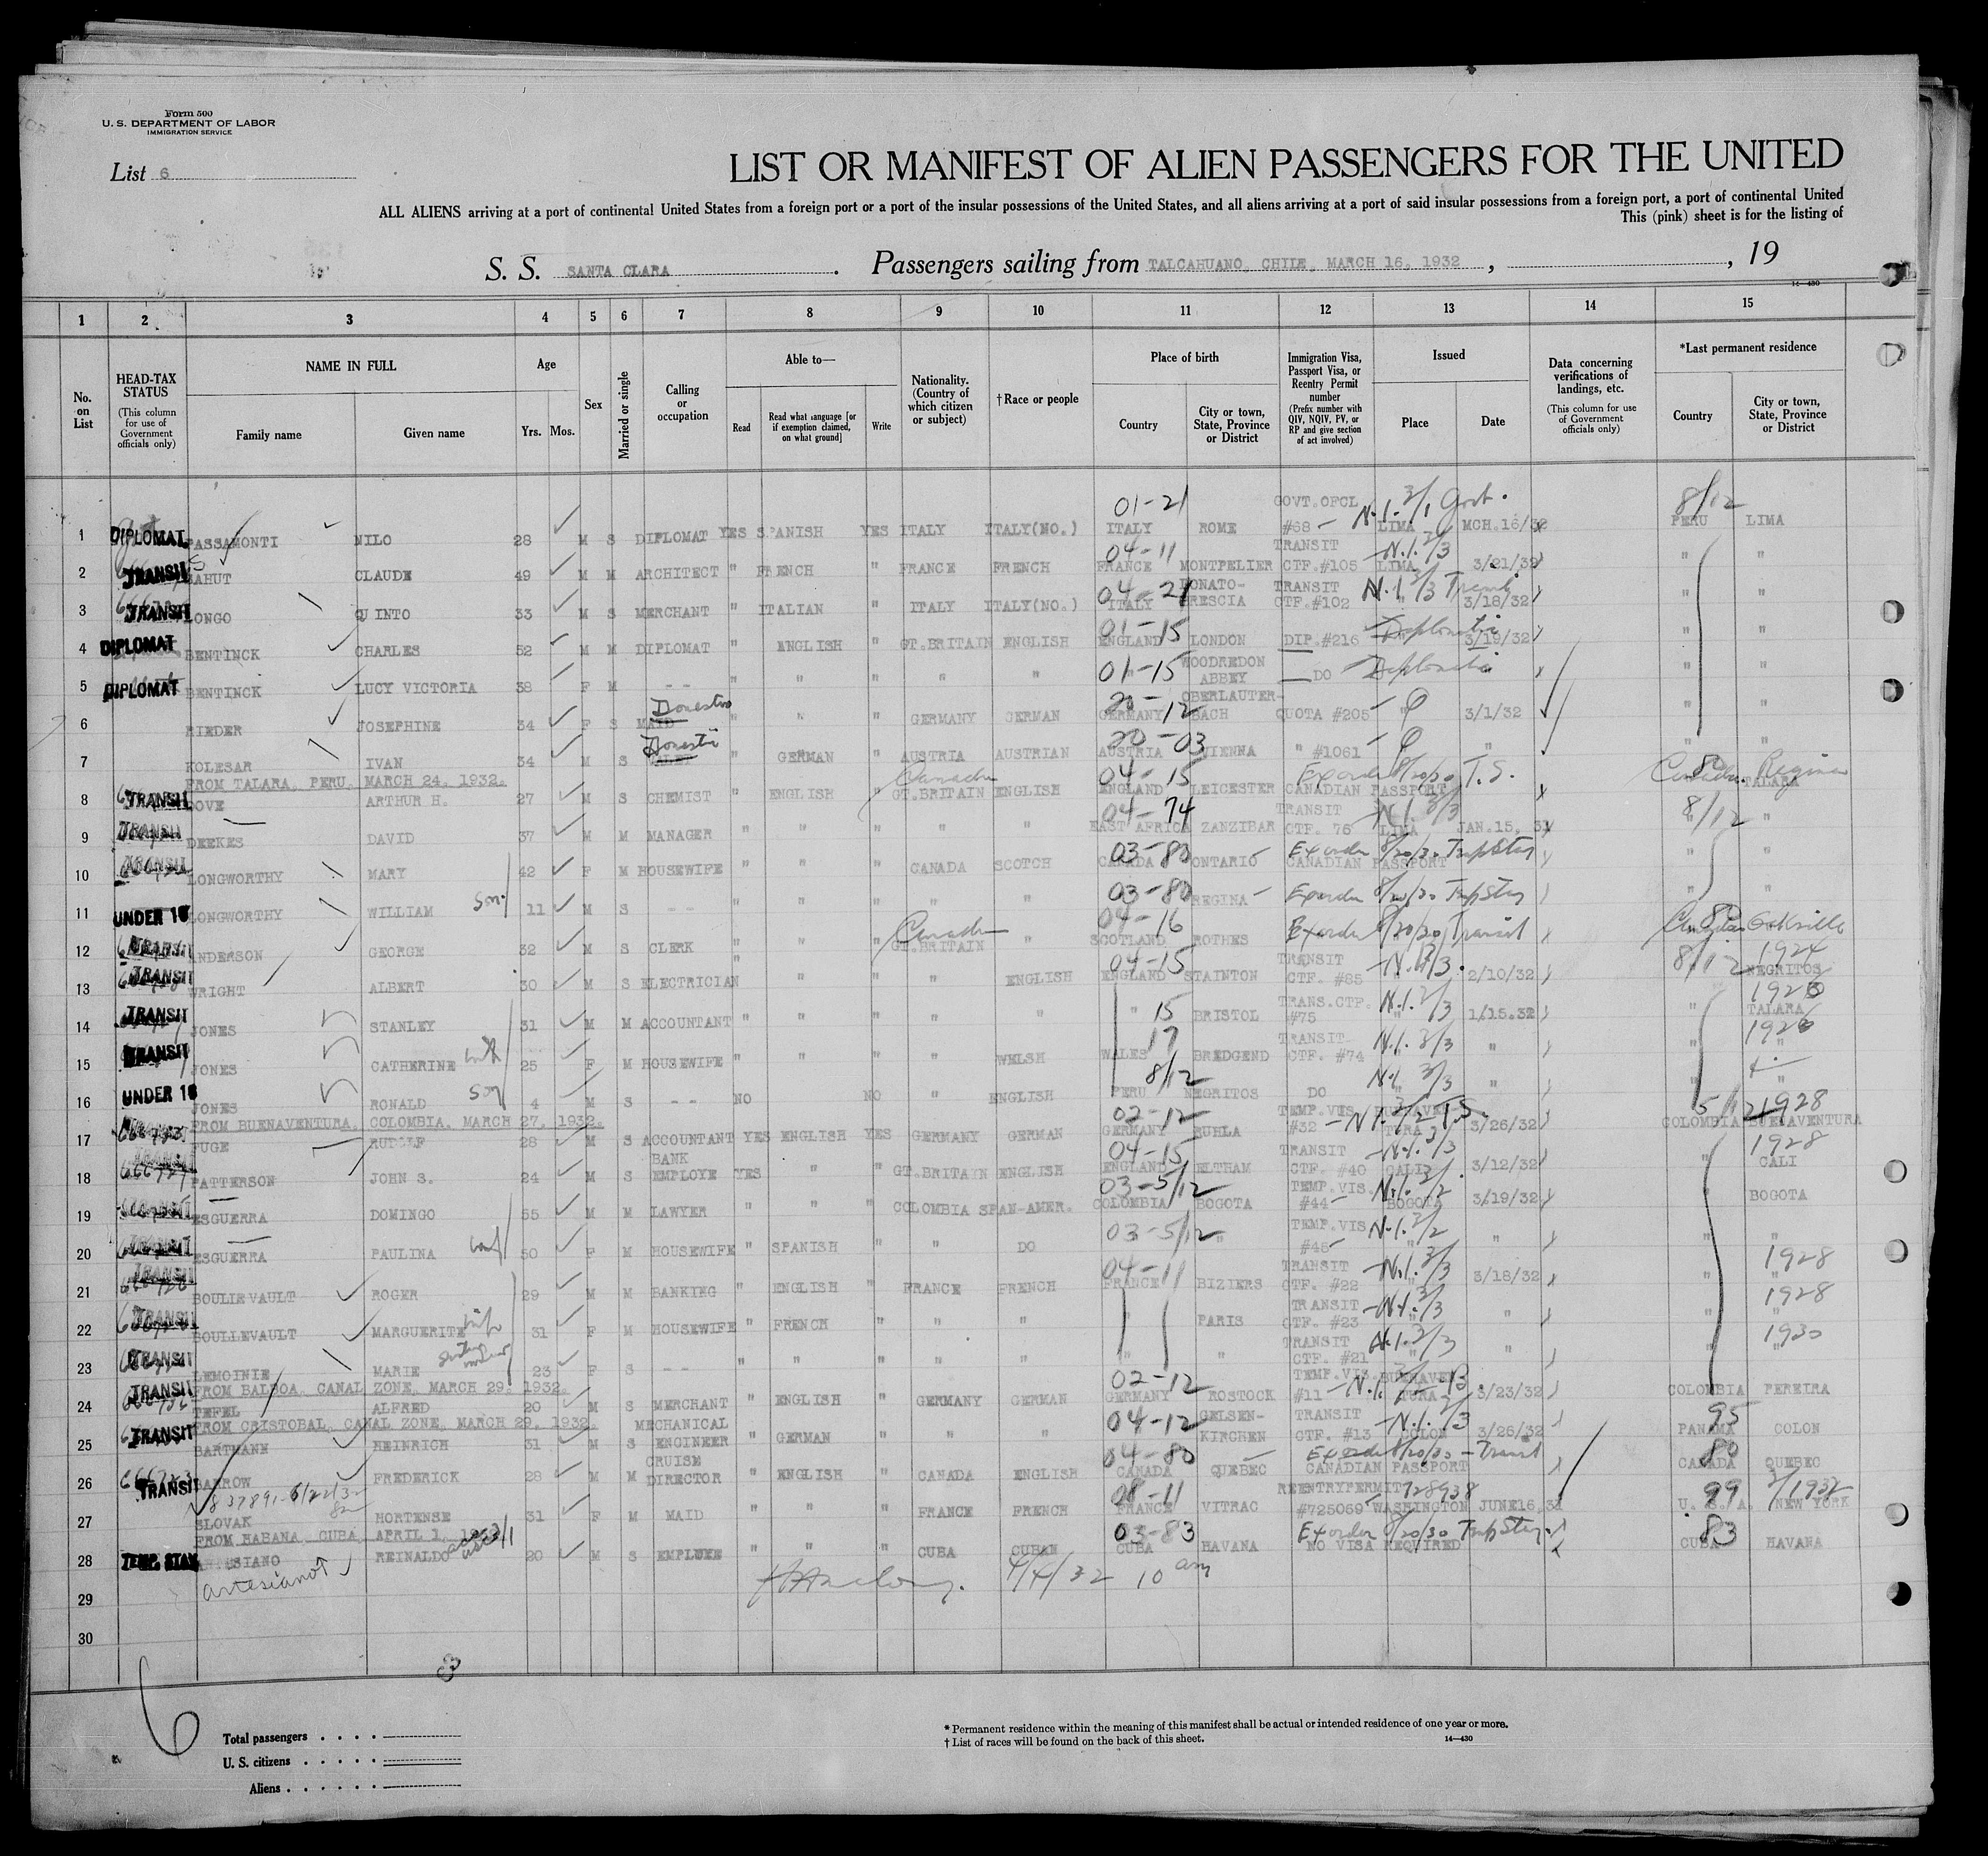 Form 500
U. S. DEPARTMENT OF LABOR
IMMIGRATION SERVICE
List 6
LIST OR MANIFEST OF ALIEN PASSENGERS FOR THE UNITED
ALL ALIENS arriving at a port of continental United States from a foreign port or a port of the insular possessions of the United States, and all aliens arriving at a port of said insular possessions from a foreign port, a port of continental United
This (pink) sheet is for the listing of
S. S. SANTA CLARA. Passengers sailing from TALCAHUANO, CHILE, MARCH 16, 1932, , 19
14—430
1 2 3 4 5 6 7 8 9 10 11 12 13 14 15
No. on List
HEAD-TAX STATUS (This column for use of Government officials only)
NAME IN FULL
Family name Given name
Age
Yrs. Mos.
Sex
Married or single
Calling or occupation
Able to—
Read Read what language [or if exemption claimed, on what ground] Write
Nationality. (Country of which citizen or subject)
†Race or people
Place of birth
Country City or town, State, Province or District
Immigration Visa, Passport Visa, or Reentry Permit number (Prefix number with QIV, NQIV, PV, or RP and give section of act involved)
Issued
Place Date
Data concerning verifications of landings, etc. (This column for use of Government officials only)
*Last permanent residence
Country City or town, State, Province or District
01-21 GOVT.OFCL N.I. 3/1 Govt. 8/12
1 DIPLOMAT PASSAMONTI NILO 28 M S DIPLOMAT YES SPANISH YES ITALY ITALY(NO.) ITALY ROME #68 LIMA MCH.16/32 PERU LIMA
04-11 TRANSIT N.I. 3/3
2 TRANSIT CLAUDE 49 M M ARCHITECT " FRENCH " FRANCE FRENCH FRANCE MONTPELIER CTF.#105 LIMA 3/21/32 " "
04-21 TRANSIT N.I. 3/3
3 TRANSIT LONGO QUINTO 33 M S MERCHANT " ITALIAN " ITALY ITALY(NO.) ITALY BRESCIA CTF.#102 " 3/18/32 " "
01-15 Diplomatic
4 DIPLOMAT BENTINCK CHARLES 52 M M DIPLOMAT " ENGLISH " GT.BRITAIN ENGLISH ENGLAND LONDON DIP.#216 3/19/32 " "
01-15 WOODREDON Diplomatic
5 DIPLOMAT BENTINCK LUCY VICTORIA 38 F M -- " " " " " " ABBEY DO " "
Domestic 20-12 OBERLAUTER-
6 RIEDER JOSEPHINE 34 F S MAID " " " GERMANY GERMAN GERMANY BACH QUOTA #205 " 3/1/32 " "
Domestic 20-03
7 KOLESAR IVAN 34 M S " GERMAN " AUSTRIA AUSTRIAN AUSTRIA VIENNA " #1061 " " "
FROM TALARA, PERU, MARCH 24, 1932.
Canada 04-15 Exorder 8/20/30 T.S. Canada Regina
8 TRANSIT DOVE ARTHUR H. 27 M S CHEMIST " ENGLISH " GT.BRITAIN ENGLISH ENGLAND LEICESTER CANADIAN PASSPORT TALARA
04-74 TRANSIT N.I. 3/3 8/12
9 TRANSIT DEEKES DAVID 37 M M MANAGER " " " " " EAST AFRICA ZANZIBAR CTF. 76 LIMA JAN.15, "
03-80 Exorder 8/20/30 TmpStay
10 TRANSIT LONGWORTHY MARY 42 F M HOUSEWIFE " " " CANADA SCOTCH CANADA ONTARIO CANADIAN PASSPORT " "
03-80 Exorder 8/20/30 TmpStay
11 UNDER 16 LONGWORTHY WILLIAM Son 11 M S -- " " " " " REGINA " "
Canada 04-16 Exorder 8/20/30 Transit Oakville
12 TRANSIT ANDERSON GEORGE 32 M S CLERK " " " GT.BRITAIN " SCOTLAND ROTHES
04-15 TRANSIT N.I. 3/3 8/12 1924
13 TRANSIT WRIGHT ALBERT 30 M S ELECTRICIAN " " " " ENGLISH ENGLAND STAINTON CTF. #85 2/10/32 NEGRITOS
15 TRANS.CTF. N.I. 3/3
14 TRANSIT JONES STANLEY 31 M M ACCOUNTANT " " " " " " BRISTOL #75 " 1/15.32 " TALARA
17 TRANSIT N.I. 3/3 1926
15 TRANSIT JONES CATHERINE wife 25 F M HOUSEWIFE " " " " WELSH WALES BREDGEND CTF. #74 " " " "
8/12 N.I. 3/3
16 UNDER 16 JONES RONALD Son 4 M S -- NO NO " ENGLISH PERU NEGRITOS DO " " " "
FROM BUENAVENTURA, COLOMBIA, MARCH 27, 1932.
02-12 TEMP.VIS. N.I. 3/2 T.S. 5/12 1928
17 FUGE RUDOLF 28 M S ACCOUNTANT YES ENGLISH YES GERMANY GERMAN GERMANY RUHLA #32 TURA 3/26/32 COLOMBIA BUENAVENTURA
BANK 04-15 TRANSIT N.I. 3/3 1928
18 666727 PATTERSON JOHN S. 24 M S EMPLOYE YES " " GT.BRITAIN ENGLISH ENGLAND ELTHAM CTF. #40 CALI 3/12/32 " CALI
03-5/12 TEMP.VIS. N.I. 3/2
19 ESGUERRA DOMINGO 55 M M LAWYER " " " COLOMBIA SPAN-AMER. COLOMBIA BOGOTA #44 BOGOTA 3/19/32 " BOGOTA
03-5/12 TEMP.VIS N.I. 3/2
20 ESGUERRA PAULINA wife 50 F M HOUSEWIFE " SPANISH " " DO " #45 " " " "
04-11 TRANSIT N.I. 3/3 1928
21 TRANSIT BOULIEVAULT ROGER 29 M M BANKING " ENGLISH " FRANCE FRENCH FRANCE BIZIERS CTF. #22 " 3/18/32 " "
TRANSIT N.I. 3/3 1928
22 TRANSIT BOULLEVAULT MARGUERITE wife 31 F M HOUSEWIFE " FRENCH " " " PARIS CTF. #23 " " "
TRANSIT N.I. 3/3 1930
23 TRANSIT LEMOINIE MARIE 23 F S -- " " " " " " " CTF. #21 " " " "
FROM BALBOA, CANAL ZONE, MARCH 29, 1932.
02-12 TEMP.VIS.
24 TRANSIT TEFEL ALFRED 20 M S MERCHANT " ENGLISH " GERMANY GERMAN GERMANY ROSTOCK #11 N.I. TURA 3/23/32 COLOMBIA PEREIRA
FROM CRISTOBAL, CANAL ZONE, MARCH 29, 1932.
MECHANICAL 04-12 GELSEN- TRANSIT N.I. 2/3 95
25 TRANSIT BARTMANN HEINRICH 31 M S ENGINEER " GERMAN " " " " KIRCHEN CTF. #13 COLON 3/26/32 PANAMA COLON
CRUISE 04-80 Exorder 8/20/30 - Transit 80
26 TRANSIT BARROW FREDERICK 28 M M DIRECTOR " ENGLISH " CANADA ENGLISH CANADA QUEBEC CANADIAN PASSPORT CANADA QUEBEC
08-11 REENTRYPERMIT 728938 99
27 SLOVAK HORTENSE 31 F M MAID " " " FRANCE FRENCH FRANCE VITRAC #725069 WASHINGTON JUNE16,31 U. S. A. NEW YORK
FROM HABANA, CUBA, APRIL 1, 1932
03-83 Exorder 8/20/30 TmpStay 83
28 TEMP. STAY REINALDO 20 M S EMPLOYE " " " CUBA CUBAN CUBA HAVANA NO VISA REQUIRED CUBA HAVANA
Artesiano
4/4/32 10 am
29
30
6
Total passengers . . . .
U. S. citizens . . . . .
Aliens . . . . . .
* Permanent residence within the meaning of this manifest shall be actual or intended residence of one year or more.
† List of races will be found on the back of this sheet.
14—430